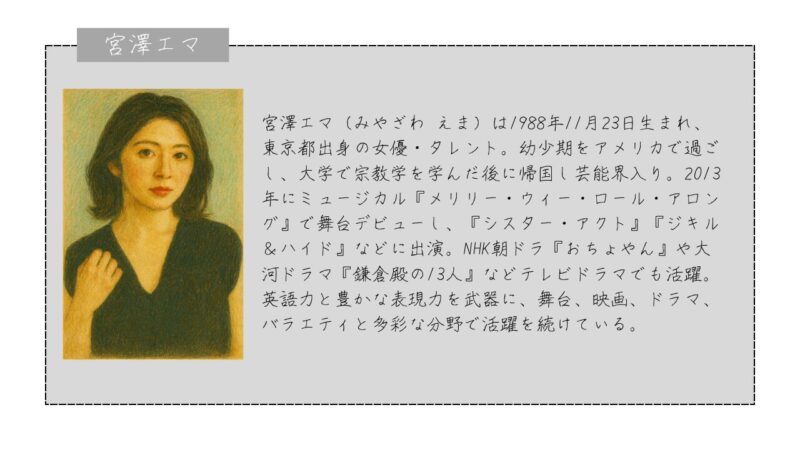 宮澤エマ
宮澤エマ（みやざわ えま）は1988年11月23日生まれ、
東京都出身の女優・タレント。幼少期をアメリカで過ご
し、大学で宗教学を学んだ後に帰国し芸能界入り。2013
年にミュージカル『メリリー・ウィー・ロール・アロン
グ』で舞台デビューし、『シスター・アクト』『ジキル
＆ハイド』などに出演。NHK朝ドラ『おちょやん』や大
河ドラマ『鎌倉殿の13人』などテレビドラマでも活躍。
英語力と豊かな表現力を武器に、舞台、映画、ドラマ、
バラエティと多彩な分野で活躍を続けている。